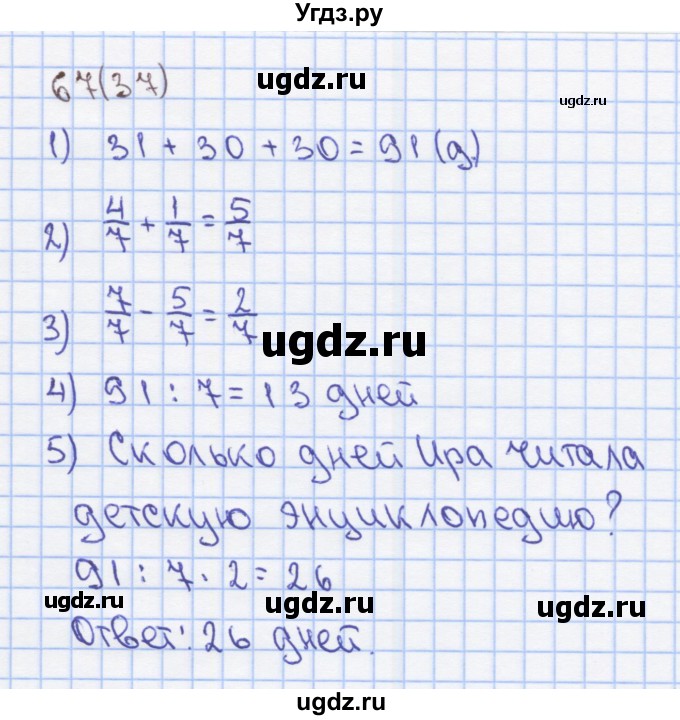 Угдз.ру
67(37)
ugdz.ru
ugdz.ru
1) 31 + 30 + 30 = 91 (д)
2) 4/7 + 1/7 = 5/7
3) 7/7 - 5/7 = 2/7
ugdz.ru
4) 91 : 7 = 13 дней
5) Сколько дней Ира читала
детскую энциклопедию?
91 : 7 · 2 = 26
ugdz.ru
ugdz.ru
ugdz.ru
Ответ: 26 дней.
ugdz.ru
ugdz.ru
ugdz.ru